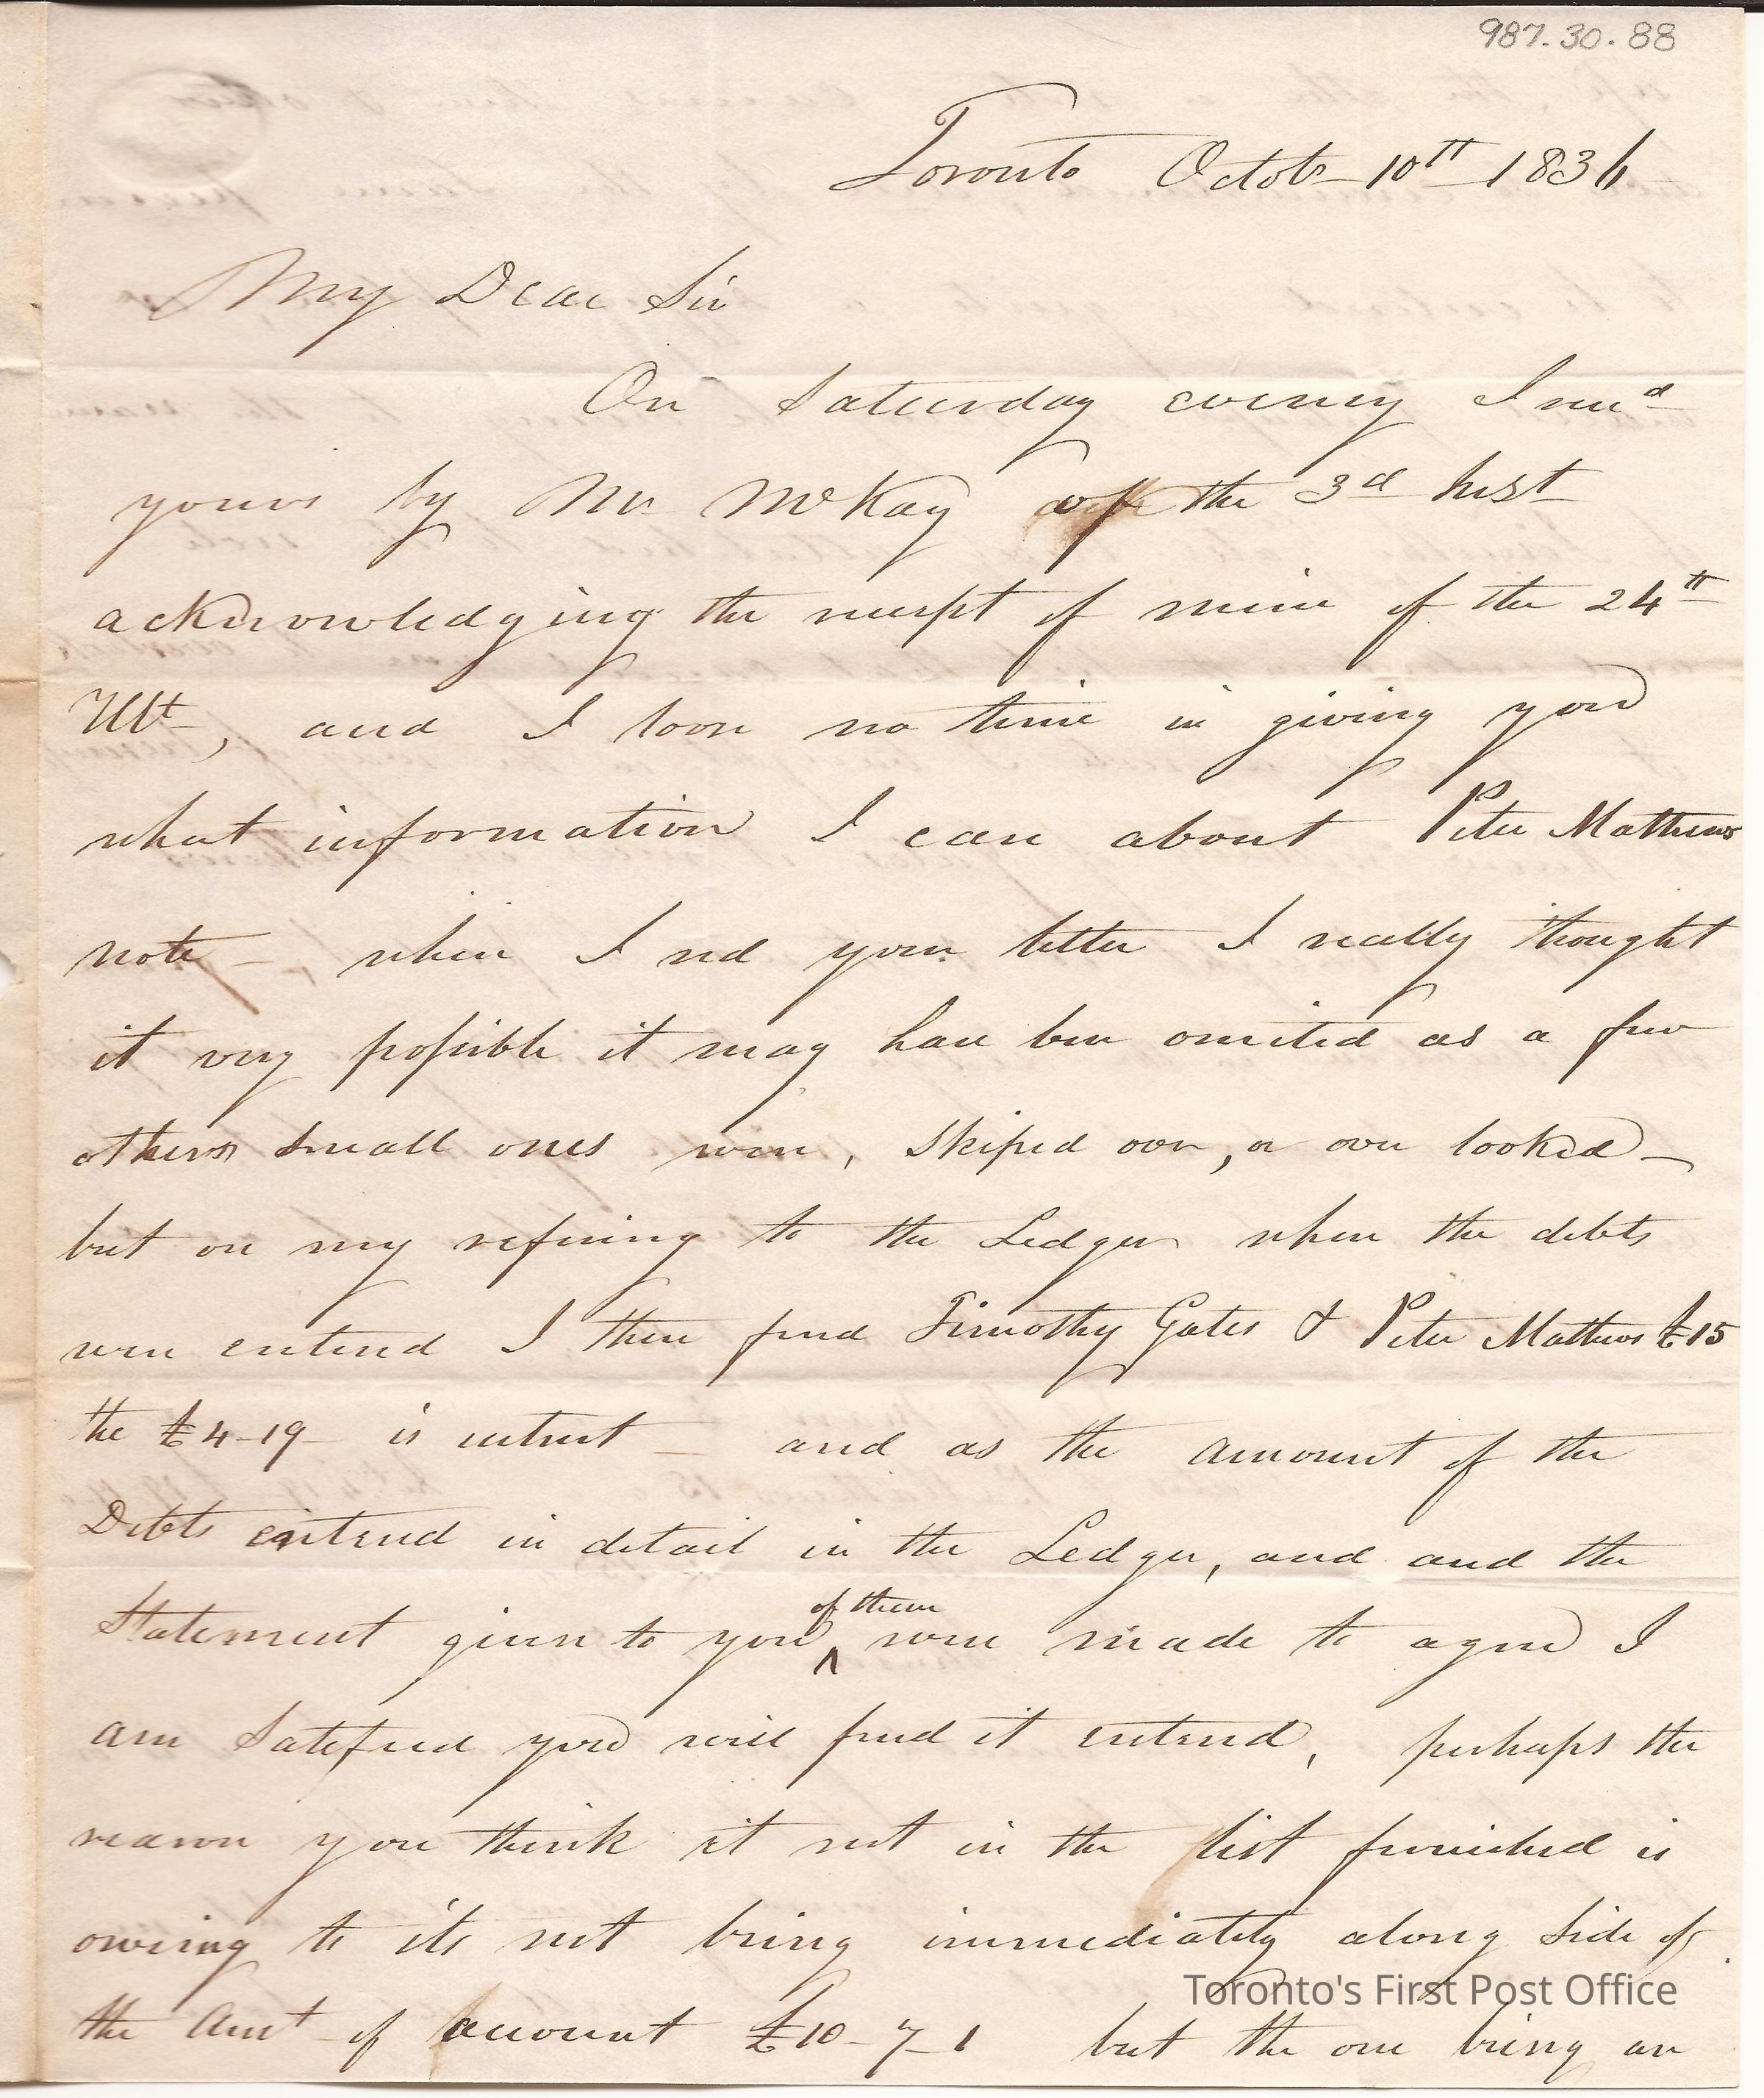 987.30.88
Toronto Octobr 10th 1836
My Dear Sir
On Saturday evening I recd
yours by Mr McKay of the 3d Inst
acknowledging the receipt of mine of the 24th
Ult, and I loose no time in giving you
what information I can about Peter Mathews
note - when I red your letter I really thought
it very possible it may have been omited as a few
others small ones were, skiped over, or over looked -
but on my refering to the Ledger when the debts
were enterd I there find Timothy Gates & Peter Mathews £15
the £4-19 - is intrest - and as the amount of the
Debts enterd in detail in the Ledger, and and the
of them
Statement given to you were made to agree I
am Satisfied you will find it enterd, perhaps the
reason you think it not in the list furnished is
owing to its not being immediately along side of
Toronto's First Post Office
the Amt of account £10-7-1 but the one being an